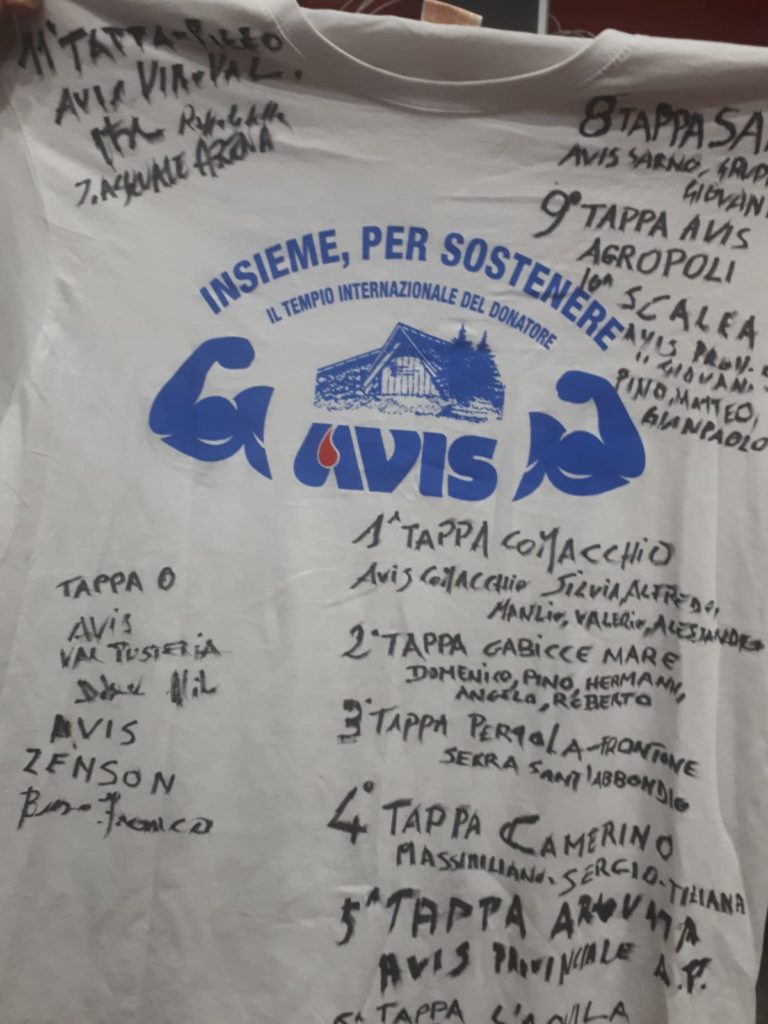 11ª TAPPA-PIZZO
AVIS VIBO VAL.
PASQUALE ARENA
8 TAPPA SA
AVIS SARNO, GRUP
GIOVAN
9ª TAPPA AVIS
AGROPOLI
10ª SCALEA
AVIS PROV.
GIOVANI
PINO, MATTEO,
GIANPAOLO
INSIEME, PER SOSTENERE
IL TEMPIO INTERNAZIONALE DEL DONATORE
AVIS
TAPPA 0
AVIS
VAL PUSTERIA
AVIS
ZENSON
1ª TAPPA COMACCHIO
AVIS COMACCHIO SILVIA, ALFREDO,
MANLIO, VALERIO, ALESSANDRO
2ª TAPPA GABICCE MARE
DOMENICO, PINO, HERMANN,
ANGELO, ROBERTO
3ª TAPPA PERGOLA-FRONTONE
SERRA SANT'ABBONDIO
4ª TAPPA CAMERINO
MASSIMILIANO-SERGIO-TIZIANA
5ª TAPPA ARQUATA
AVIS PROVINCIALE A.P.
6ª TAPPA L'AQUILA